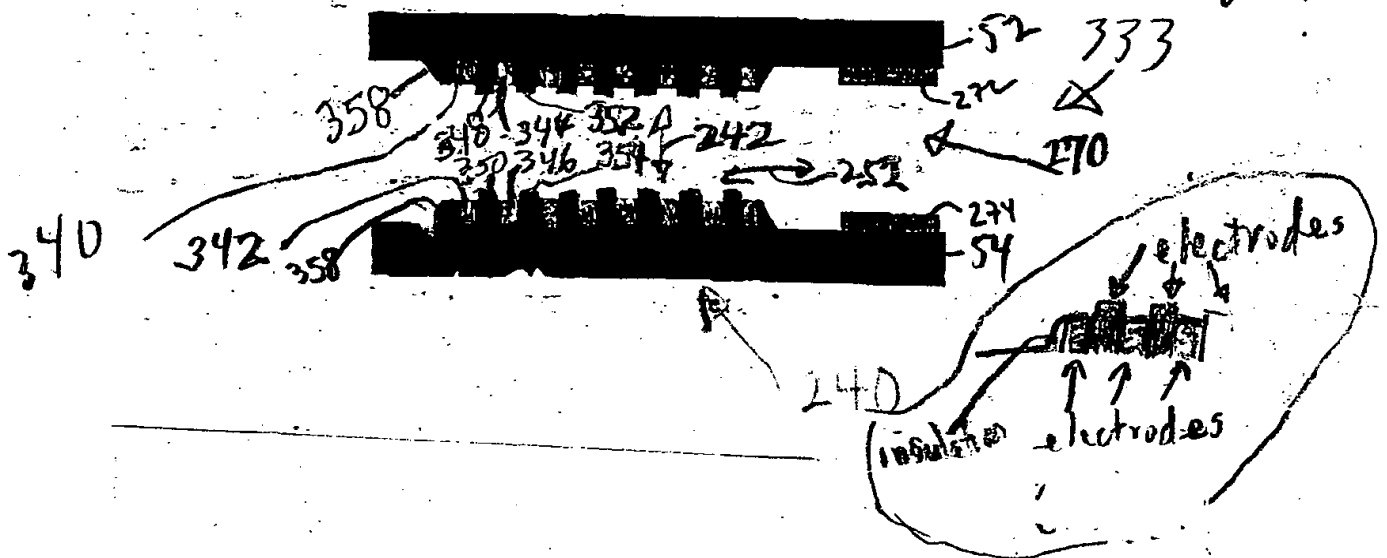 52
333
358
272
348 344 352
242
170
350 346 354
252
340
342
358
274
54
electrodes
240
insulation
electrodes